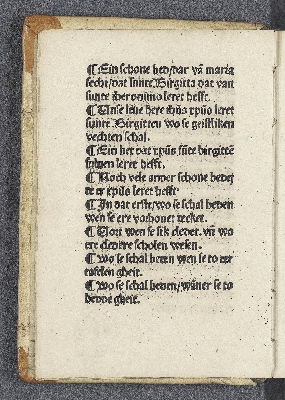 ¶ Ein schone bed/dar vā maria
secht/dat sunte Birgitta dat van
sunte iheronimo leret hefft.
¶ Unse leue here ihūs xpūs leret
sunte Birgitten wo se geistliken
vechten schal.
¶ Ein bet dat xpūs sūte birgittē
suluen leret hefft.
¶ Noch vele ander schone bedet
te er xpūs leret hefft
¶ In dat erste/wo se schal beden
wen se ere vorhouet decket.
¶ Vort wen se sik cledet. vñ wo
ere cledere scholen wesen.
¶ wo se schal beten wen se to der
tafelen gheit.
¶ wo se schal beden/wāner se to
bedde gheit.